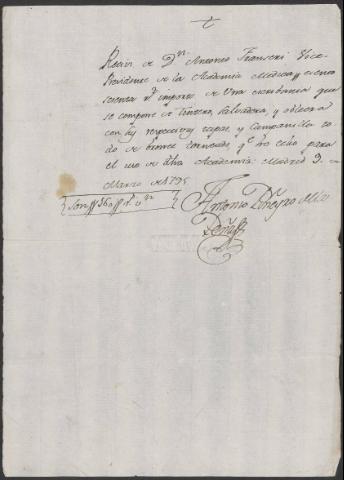 Reciví de Dn. Antonio Franseri Vice-
Presidente de la Academia Médica
el importe de Una escribania que
se compone de tintero, Salvadera, y oblera
con sus respectivas tapas, y Campanilla to-
do de bronce torneado, q.e he echo para
el uso de dha Academia: Madrid 9. de
Marzo de 1795
Son 360 rs. vn.
Antonio